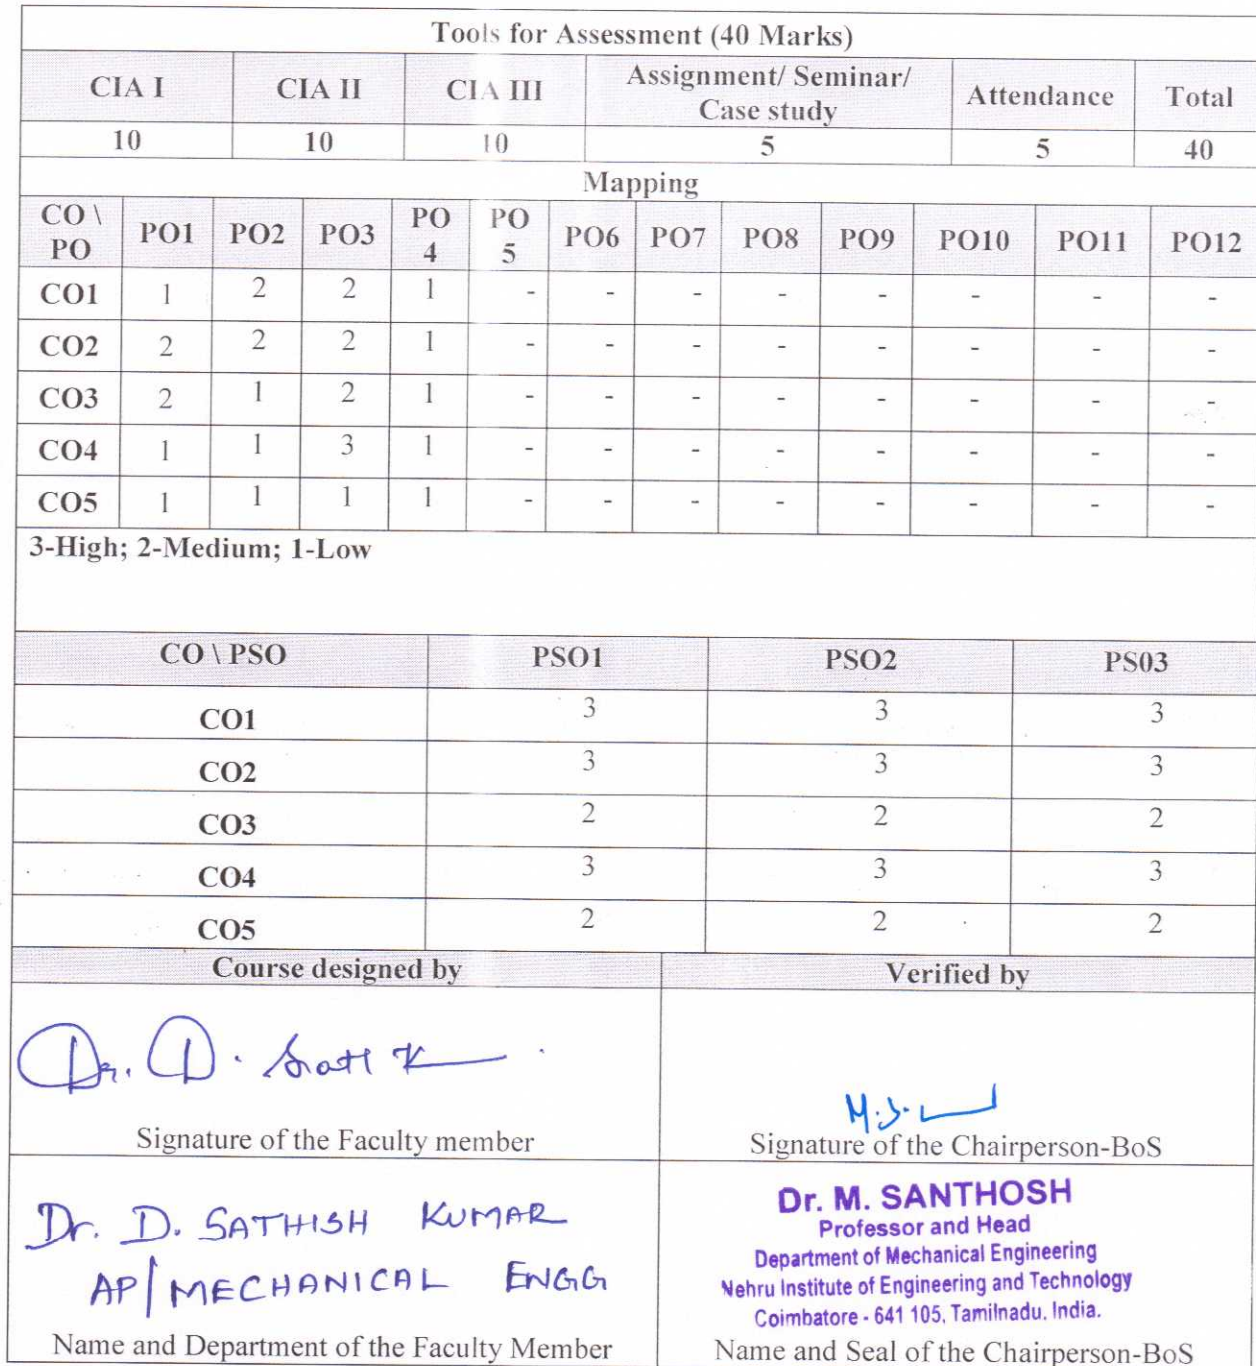 Tools for Assessment (40 Marks)
CIA I CIA II CIA III Assignment/ Seminar/ Case study Attendance Total
10 10 10 5 5 40
Mapping
CO \ PO PO1 PO2 PO3 PO 4 PO 5 PO6 PO7 PO8 PO9 PO10 PO11 PO12
CO1 1 2 2 1 - - - - - - - -
CO2 2 2 2 1 - - - - - - - -
CO3 2 1 2 1 - - - - - - - -
CO4 1 1 3 1 - - - - - - - -
CO5 1 1 1 1 - - - - - - - -
3-High; 2-Medium; 1-Low
CO \ PSO PSO1 PSO2 PS03
CO1 3 3 3
CO2 3 3 3
CO3 2 2 2
CO4 3 3 3
CO5 2 2 2
Course designed by Verified by
Dr. D.
Signature of the Faculty member
Signature of the Chairperson-BoS
Dr. D. SATHISH KUMAR
AP/MECHANICAL ENGG
Name and Department of the Faculty Member
Dr. M. SANTHOSH
Professor and Head
Department of Mechanical Engineering
Nehru Institute of Engineering and Technology
Coimbatore - 641 105, Tamilnadu. India.
Name and Seal of the Chairperson-BoS